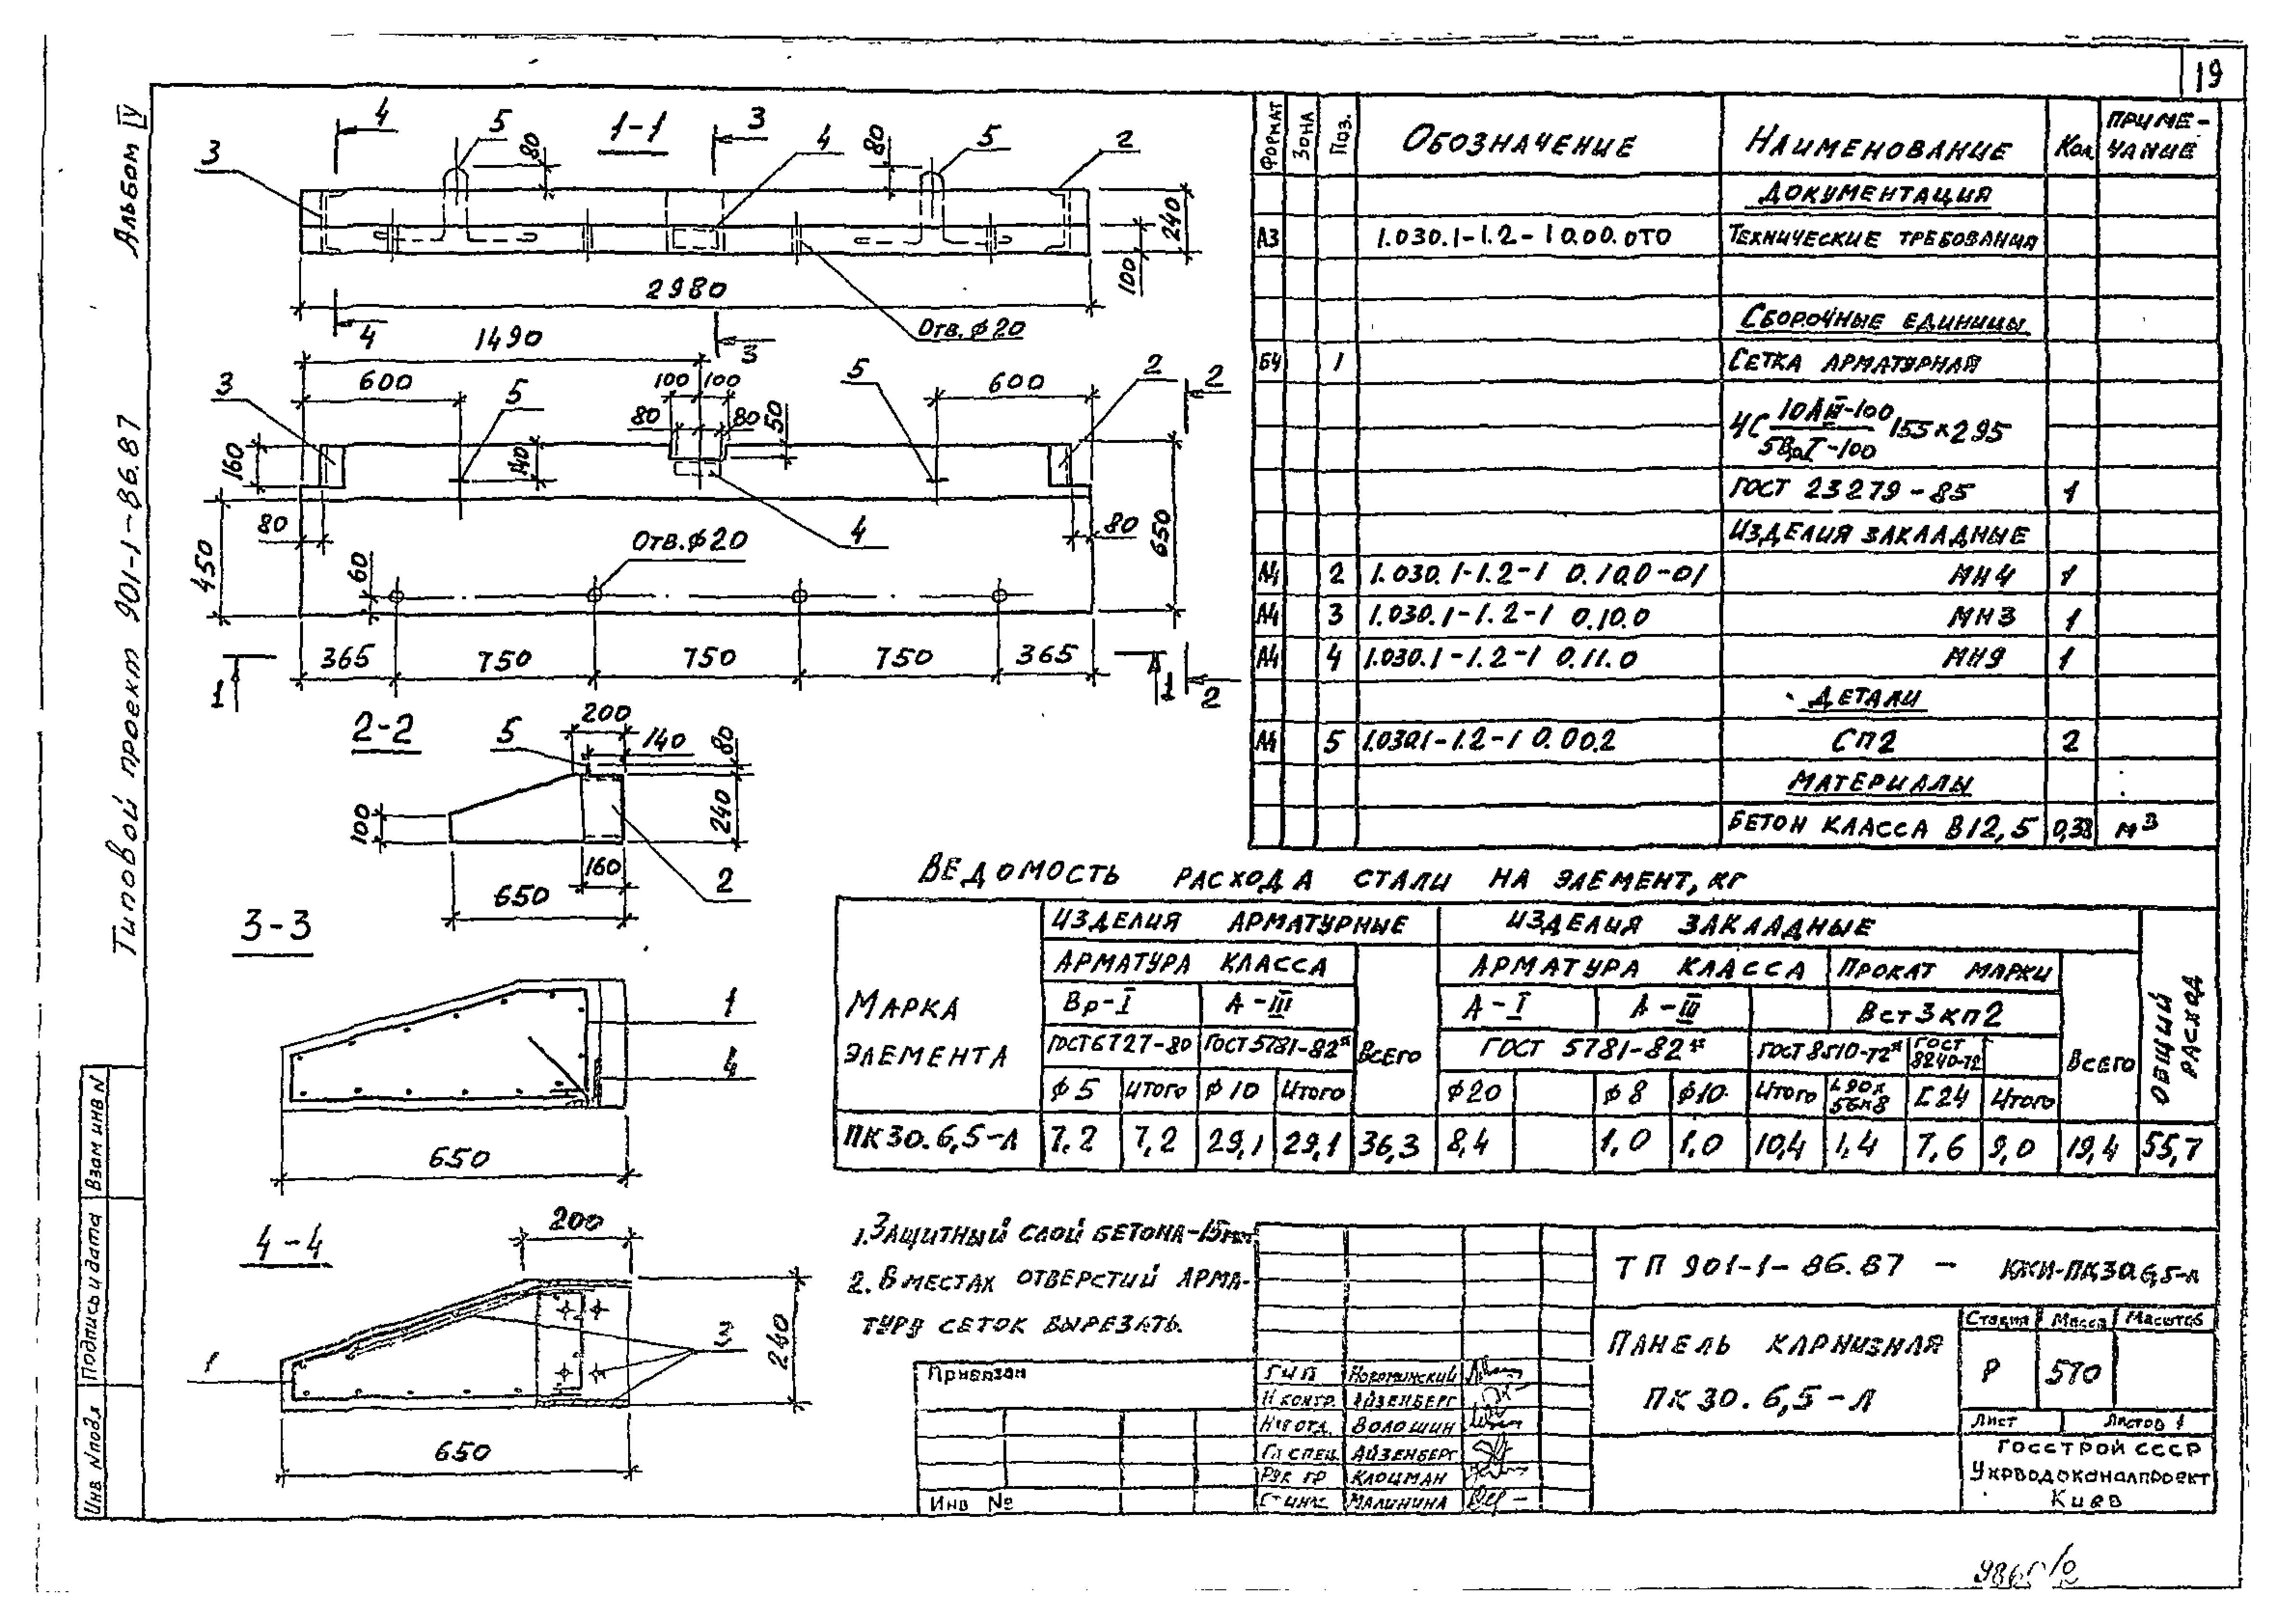 19
Альбом IV
Типовой проект 901-1-86.87
Взам инв N
Подпись и дата
Инв N подл
1-1
4
5
3
4
5
2
3
80
80
240
100
2980
4
3
Отв. ф20
1490
600
100
100
600
3
5
5
2
2
80
80
50
160
140
450
80
80
650
4
Отв. ф20
60
365
750
750
750
365
1
1
2
2-2
5
200
140
80
100
240
160
650
2
3-3
1
4
650
4-4
200
1
3
240
650
Формат
Зона
Поз.
Обозначение
Наименование
Кол
Примечание
Документация
А3
1.030.1-1.2-1 0.00.0ТО
Технические требования
Сборочные единицы
Б4
1
Сетка арматурная
4С 10АIII-100 / 5ВрI-100 155х295
ГОСТ 23279-85
1
Изделия закладные
А4 2 1.030.1-1.2-1 0.10.0-01 МН4 1
А4 3 1.030.1-1.2-1 0.10.0 МН3 1
А4 4 1.030.1-1.2-1 0.11.0 МН9 1
Детали
А4 5 1.030.1-1.2-1 0.00.2 СП2 2
Материалы
Бетон класса В12,5 0,38 м3
Ведомость расхода стали на элемент, кг
Марка элемента
Изделия арматурные
Изделия закладные
Общий расход
Арматура класса
Всего
Арматура класса
Прокат марки
Всего
Вр-I
А-III
А-I
А-III
Вст3кп2
ГОСТ 6727-80
ГОСТ 5781-82*
ГОСТ 5781-82*
ГОСТ 8510-72*
ГОСТ 8240-72
ф5
Итого
ф10
Итого
ф20
ф8
ф10
Итого
L90х56х8
[24
Итого
ПК30.6,5-Л 7.2 7,2 29,1 29,1 36,3 8,4 1,0 1,0 10,4 1,4 7,6 9,0 19,4 55,7
1. Защитный слой бетона-15мм
2. В местах отверстий арма-
туру сеток вырезать.
Привязан
Инв №
ГИП
Н контр. Айзенберг
Нач отд. Волошин
Гл спец. Айзенберг
Рук гр Клоцман
Ст инж. Малинина
ТП 901-1-86.87 - КЖИ-ПК30.6,5-Л
Панель карнизная
ПК 30.6,5-Л
Стадия
Масса
Масштаб
Р
570
Лист
Листов 1
Госстрой СССР
Укрводоканалпроект
Киев